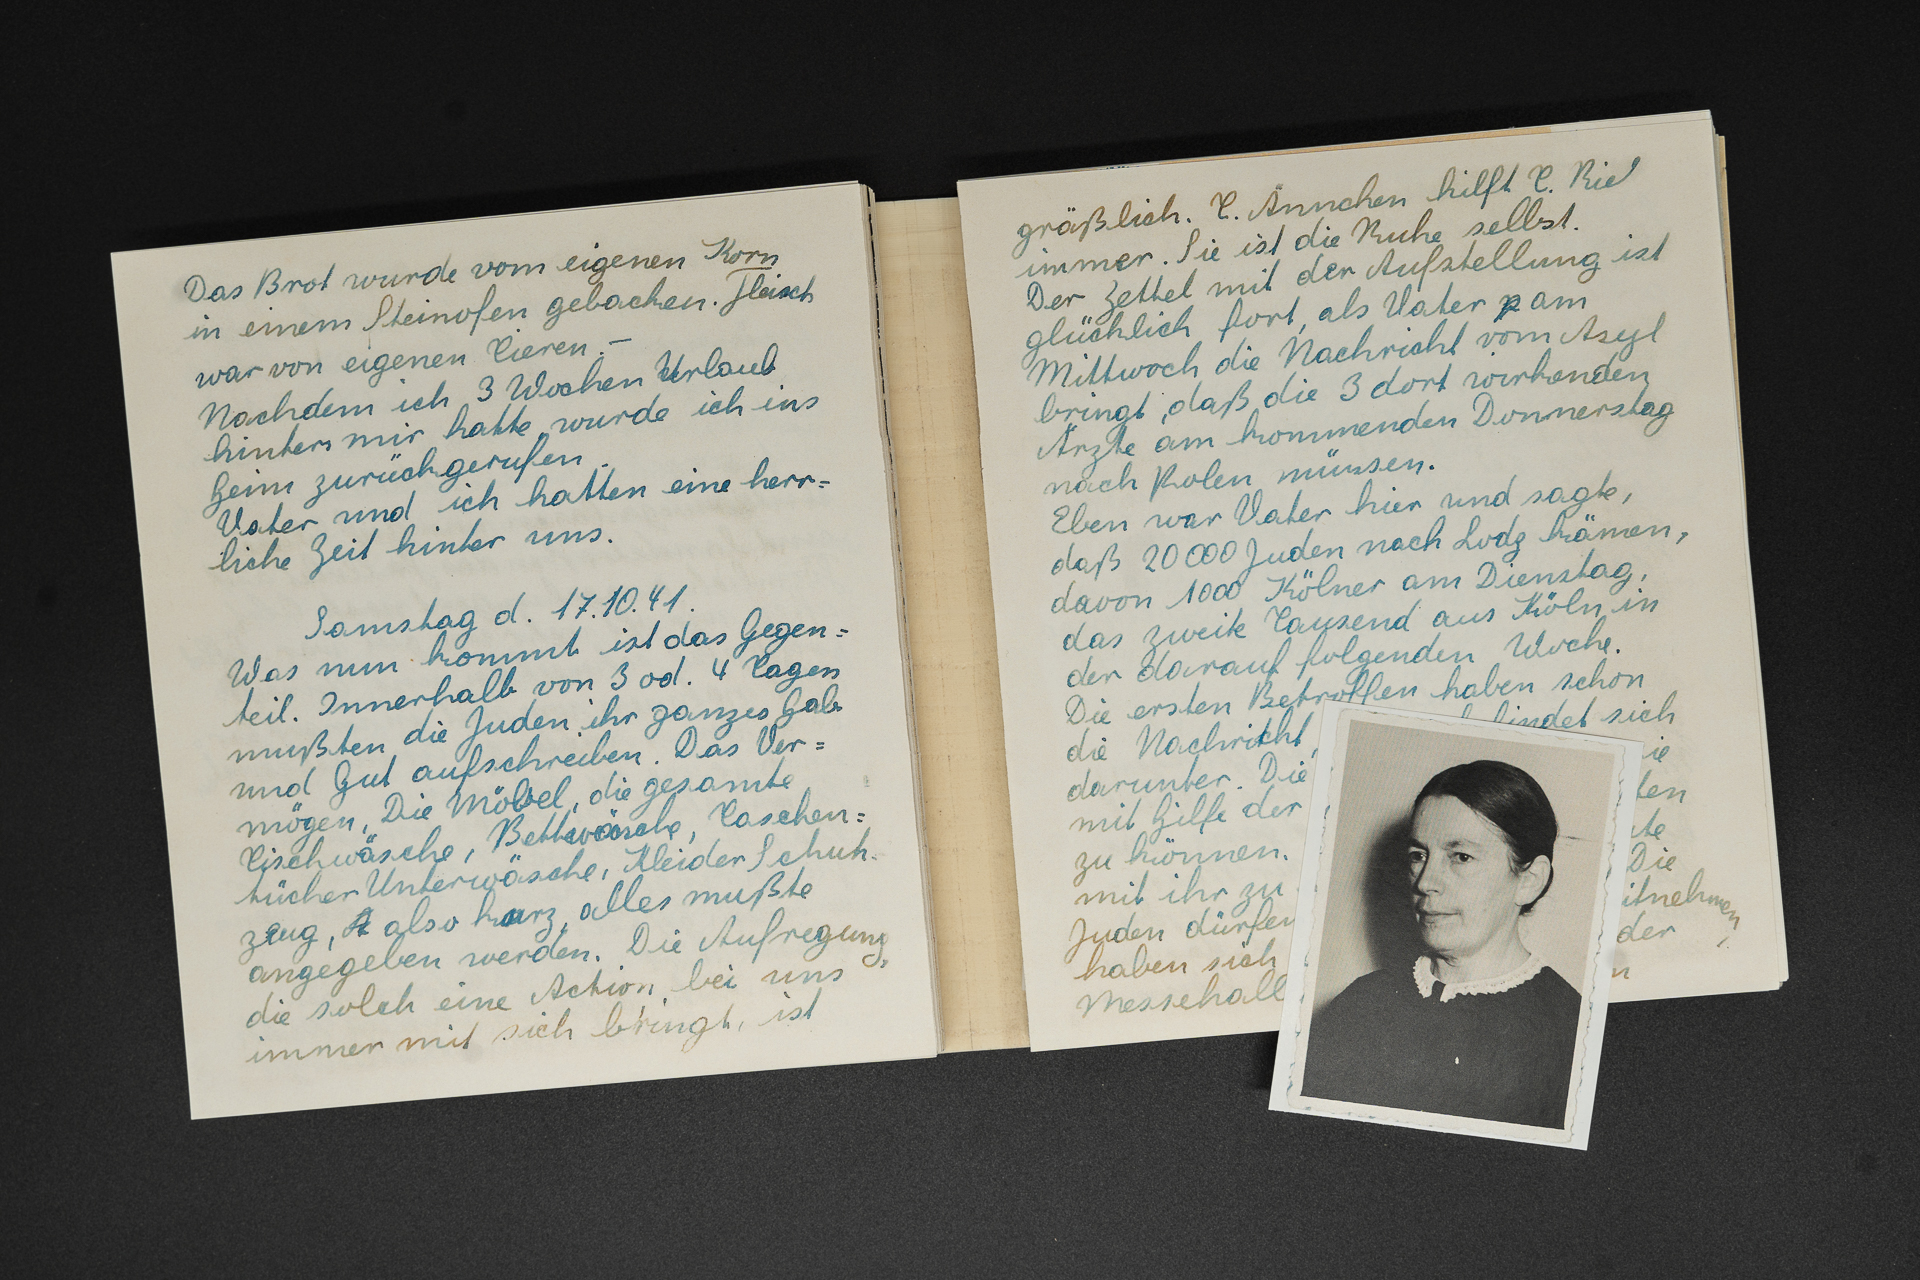 Das Brot wurde vom eigenen Korn
in einem Steinofen gebacken. Fleisch
war von eigenen Tieren. –
Nachdem ich 3 Wochen Urlaub
hinter mir hatte, wurde ich ins
Heim zurückgerufen.
Vater und ich hatten eine herr=
liche Zeit hinter uns.
Samstag d. 17.10.41.
Was nun kommt ist das Gegen=
teil. Innerhalb von 3 od. 4 Tagen
mußten die Juden ihr ganzes Hab
und Gut aufschreiben. Das Ver=
mögen, Die Möbel, die gesamte
Tischwäsche, Bettwäsche, Taschen=
tücher Unterwäsche, Kleider Schuh-
zeug, also kurz, alles mußte
angegeben werden. Die Aufregung,
die solch eine Action bei uns
immer mit sich bringt, ist
gräßlich. T. Ännchen hilft T.
immer. Sie ist die Ruhe selbst.
Der Zettel mit der Aufstellung ist
glücklich fort, als Vater am
Mittwoch die Nachricht vom Asyl
bringt, daß die 3 dort wirkenden
Ärzte am kommenden Donnerstag
nach Polen müssen.
Eben war Vater hier und sagte,
daß 20000 Juden nach Lodz kämen,
davon 1000 Kölner am Dienstag,
das zweite Tausend aus Köln in
der darauf folgenden Woche.
Die ersten Betroffen haben schon
die Nachricht, findet sich
darunter. Die
mit Hilfe der
zu können.
mit ihr zu Die
Juden dürfen mitnehmen,
haben sich der
Messehall